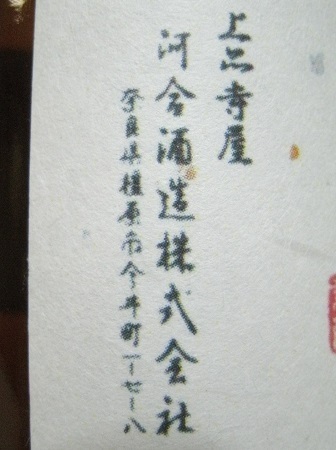 上品寺屋
河合酒造株式会社
奈良県橿原市今井町一ー七ー八